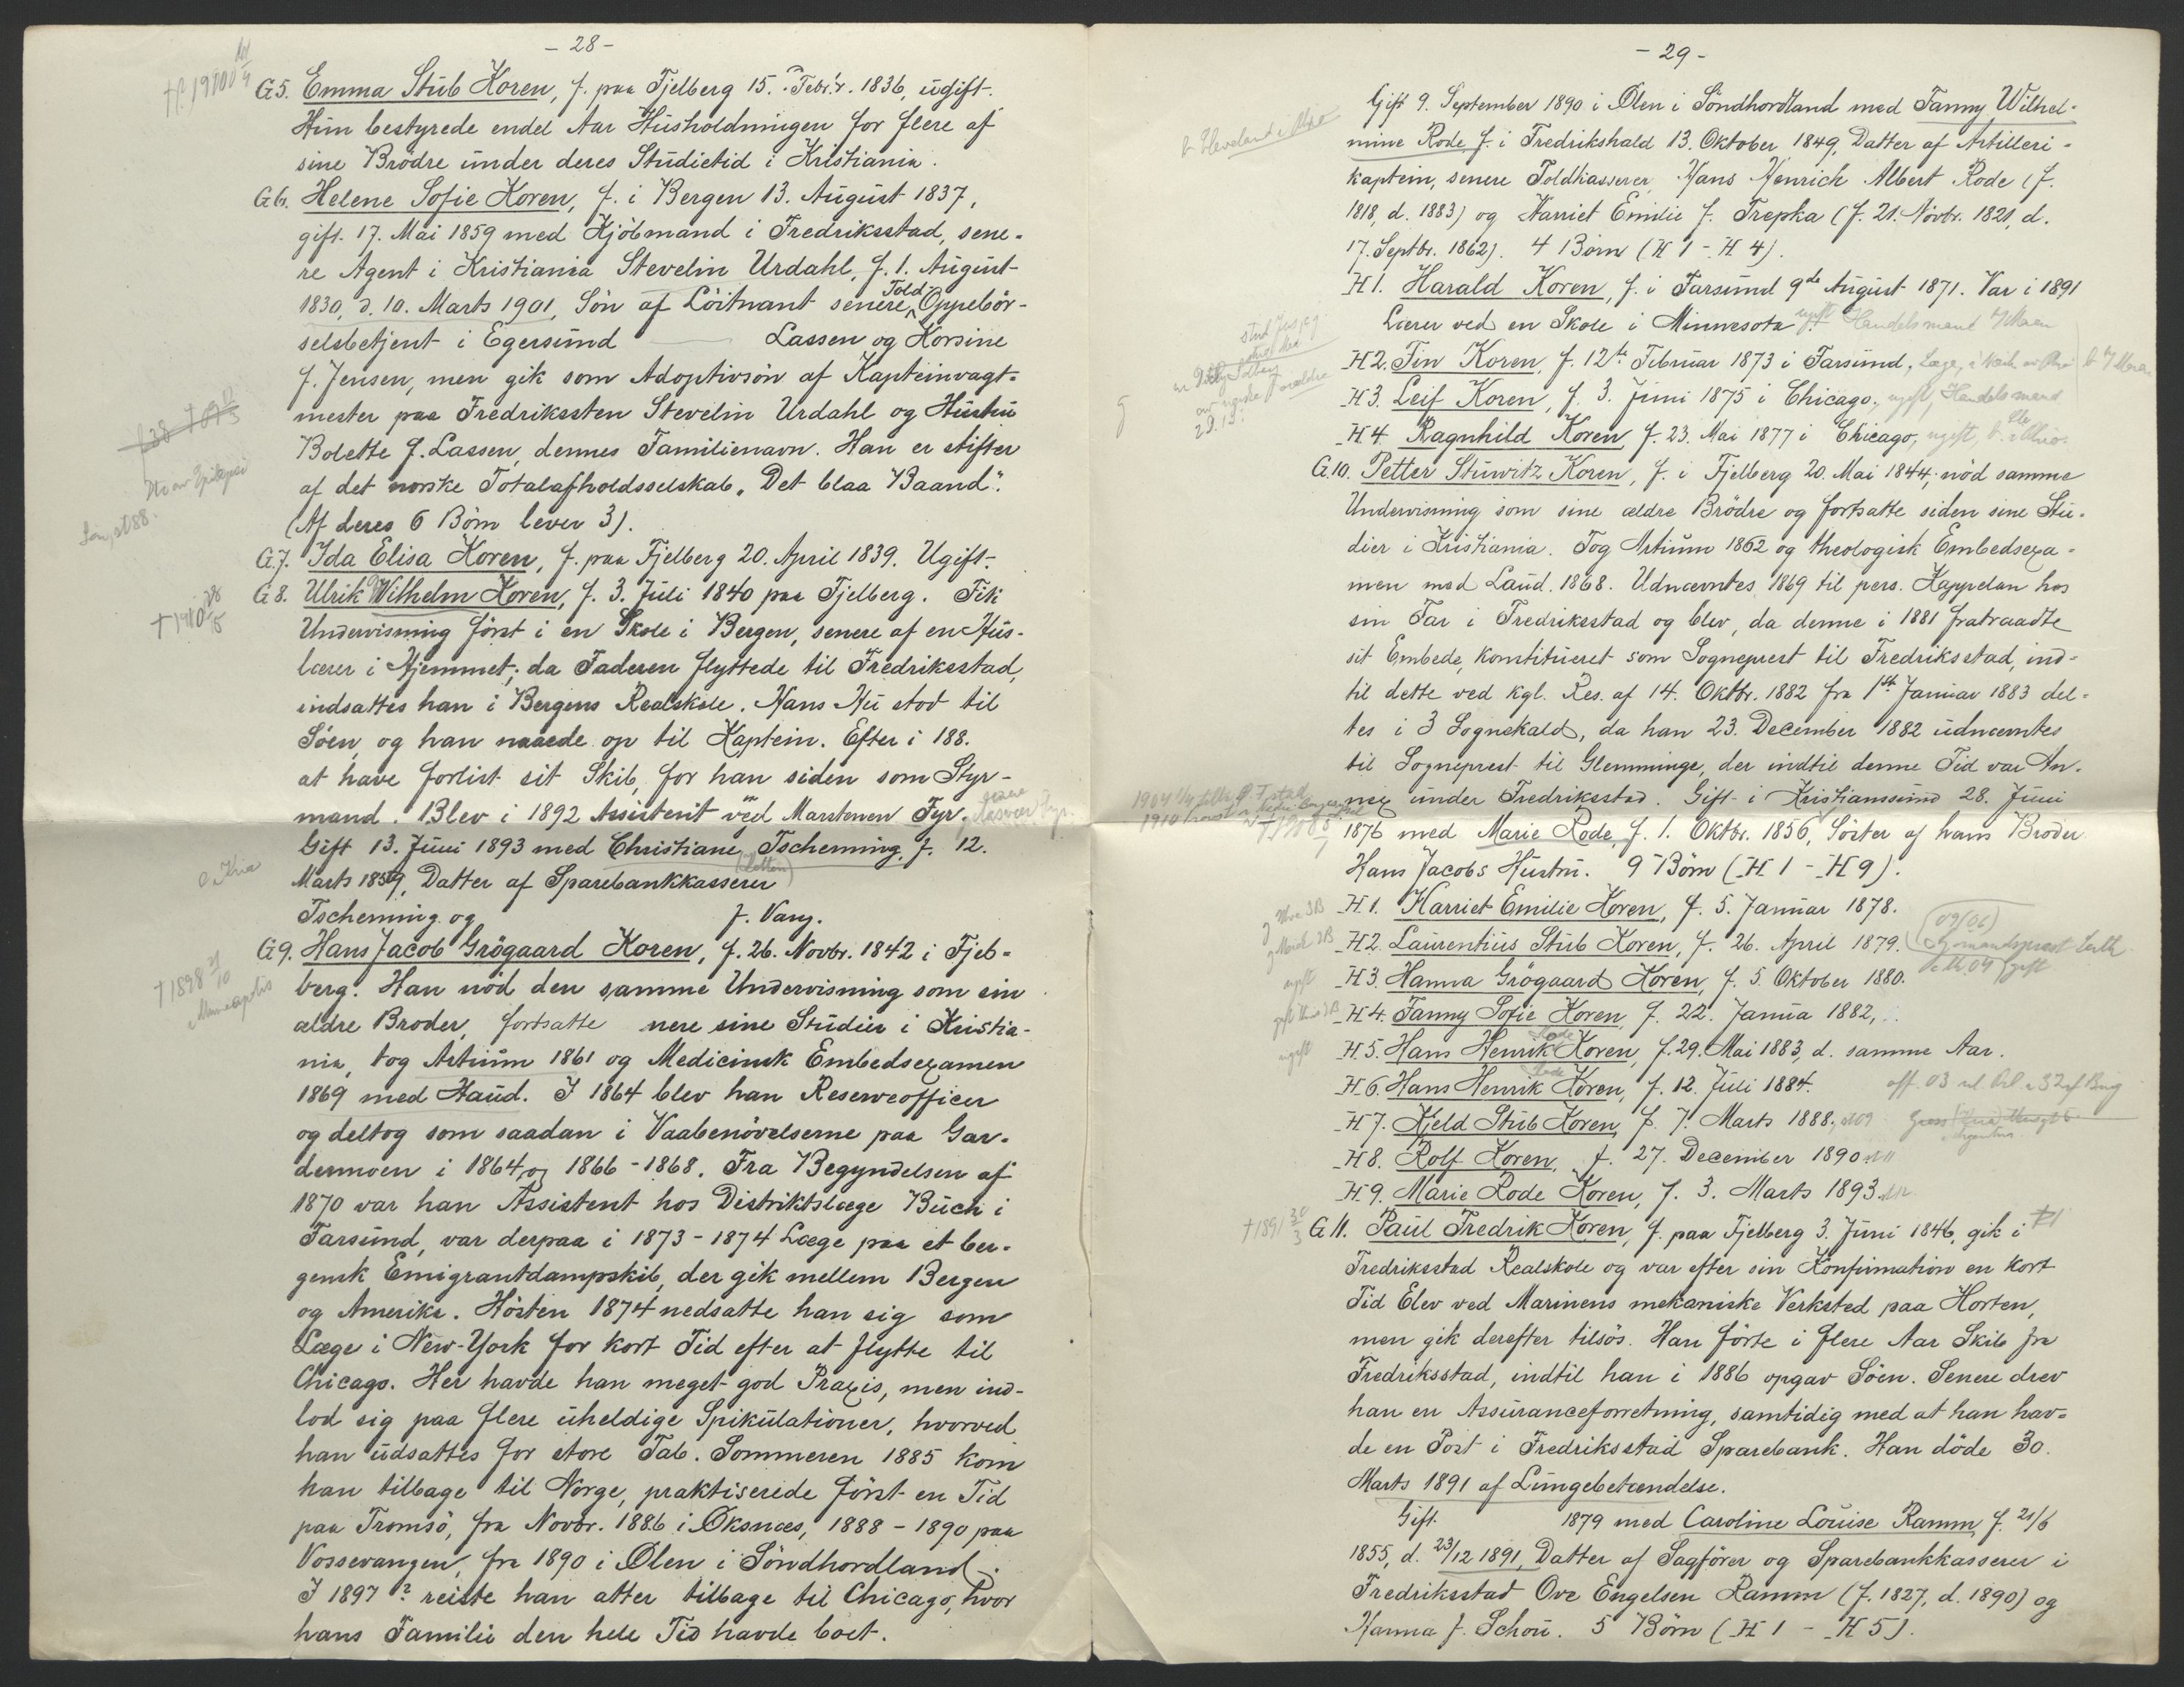 - 28 -
G5. Emma Stub Koren, f. paa Fjelberg 15. Febr. 1836, ugift.
Hun bestyrede endel Aar Husholdningen for flere af
sine Brödre under deres Studietid i Kristiania.
G6. Helene Sofie Koren, f. i Bergen 13. August 1837,
gift. 17. Mai 1859 med Kjöbmand i Fredriksstad, sene-
re Agent i Kristiania Stevelin Urdahl, f. 1. August
1830, d. 10. Marts 1901, Sön af Löitnant senere Told- Oppebör-
selsbetjent i Egersund Lassen og Korsine
f. Jensen, men gik som Adoptivsön af Kapteinvagt-
mester paa Fredrikssten Stevelin Urdahl og Hustru
Bolette f. Lassen, dennes Familienavn. Han er stifter
af det norske Totalafholdsselskab "Det blaa Baand".
(Af deres 6 Börn lever 3).
G.7. Ida Elisa Koren, f. paa Fjelberg 20. April 1839. Ugift.
G8. Ulrik Wilhelm Koren, f. 3. Juli 1840 paa Fjelberg. Fik
† 1910
Undervisning först i en Skole i Bergen, senere af en Hus-
lærer i Hjemmet; da Faderen flyttede til Fredriksstad,
indsattes han i Bergens Realskole. Hans Hu stod til
Söen, og han naaede op til Kaptein. Efter i 188.
at have forlist sit Skib, for han siden som Styr-
mand. Blev i 1892 Assistent ved Marstenen Fyr.
Gift 13. Juni 1893 med Christiane Tscherning, f. 12.
Marts 1859, Datter af Sparebankkasserer
Tscherning og f. Vang.
G9. Hans Jacob Grögaard Koren, f. 26. Novbr. 1842 i Fjel-
† 1898
berg. Han nöd den samme Undervisning som sin
ældre Broder, fortsatte nere sine Studier i Kristia-
nia, tog Artium 1861 og Medicinsk Embedsexamen
1869 med Haud. I 1864 blev han Reserveofficer
og deltog som saadan i Vaabenövelserne paa Gar-
dermoen i 1864 og 1866 - 1868. Fra Begyndelsen af
1870 var han Assistent hos Distriktslæge Buch i
Farsund, var derpaa i 1873 - 1874 Læge paa et ber-
gensk Emigrantdampskib, der gik mellem Bergen
og Amerika. Hösten 1874 nedsatte han sig som
Læge i New-York for kort Tid efter at flytte til
Chicago. Her havde han meget god Praxis, men ind-
lod sig paa flere uheldige Spikulationer, hvorved
han udsattes for store Tab. Sommeren 1885 kom
han tilbage til Norge, praktiserede först en Tid
paa Tromsö, fra Novbr. 1886 i Øksnæs, 1888 - 1890 paa
Vossevangen, fra 1890 i Ølen i Söndhordland.
I 1897 ? reiste han atter tilbage til Chicago, hvor
hans Familie den hele Tid havde boet.
- 29 -
Gift 9. September 1890 i Ølen i Söndhordland med Fanny Wilhel-
mine Rode f. i Fredrikshald 13. Oktober 1849, Datter af Artilleri-
kaptein, senere Toldkasserer, Hans Henrich Albert Rode (f.
1818, d. 1883) og Harriet Emilie f. Trepka (f. 21. Novbr. 1821, d.
17. Septbr. 1862). 4 Börn (H 1 - H 4).
H 1. Harald Koren, f. i Farsund 9de August 1871. Var i 1891
Lærer ved en Skole i Minnesota ugift Handelsmand
H2. Fin Koren, f. 12te Februar 1873 i Farsund, Læge,
H3. Leif Koren, f. 3. Juni 1875 i Chicago, ugift, Handelsmand
H4. Ragnhild Koren, f. 23. Mai 1877 i Chicago, ugift,
G.10. Petter Stuwitz Koren, f. i Fjelberg 20. Mai 1844; nöd samme
Undervisning som sine ældre Brödre og fortsatte siden sine Stu-
dier i Kristiania. Tog Artium 1862 og theologisk Embedsexa-
men med Laud. 1868. Udnævntes 1869 til pers. Kappelan hos
sin Far i Fredriksstad og blev, da denne i 1881 fratraadte
sit Embede, konstitueret som Sogneprest til Fredriksstad, ind-
til dette ved kgl. Res. af 14. Oktbr. 1882 fra 1ste Januar 1883 del-
tes i 3 Sognekald, da han 23. December 1882 udnævntes
til Sogneprest til Glemminge, der indtil denne Tid var An-
nex under Fredriksstad. Gift i Kristianssund 28. Juni
1876 med Marie Rode, f. 1. Oktbr. 1856, Söster af hans Broder
Hans Jacobs Hustru. 9 Börn (H 1 - H 9).
H1. Harriet Emilie Koren, f. 5. Januar 1878.
H2. Laurentius Stub Koren, f. 26. April 1879.
H3. Hanna Grögaard Koren, f. 5. Oktober 1880.
H4. Fanny Sofie Koren, f. 22. Janua 1882,
H.5. Hans Henrik Rode Koren, f. 29. Mai 1883, d. samme Aar.
H6. Hans Henrik Rode Koren, f. 12. Juli 1884.
H7. Kjeld Stub Koren, f. 7. Marts 1888,
H8. Rolf Koren, f. 27. December 1890
H9. Marie Rode Koren, f. 3. Marts 1893
† 1891 30/3 G11. Paul Fredrik Koren, f. paa Fjelberg 3. Juni 1846, gik i
Fredriksstad Realskole og var efter sin Konfirmation en kort
Tid Elev ved Marinens mekaniske Verksted paa Horten,
men gik derefter tilsös. Han förte i flere Aar Skib fra
Fredriksstad, indtil han i 1886 opgav Söen. Senere drev
han en Assuranceforretning, samtidig med at han hav-
de en Post i Fredriksstad Sparebank. Han döde 30.
Marts 1891 af Lungebetændelse.
Gift 1879 med Caroline Louise Ramm, f. 21/6
1855, d. 23/12 1891, Datter af Sagförer og Sparebankkasserer i
Fredriksstad Ove Engelsen Ramm (f. 1827, d. 1890) og
Hanna f. Schou. 5 Börn (H 1 - H 5).